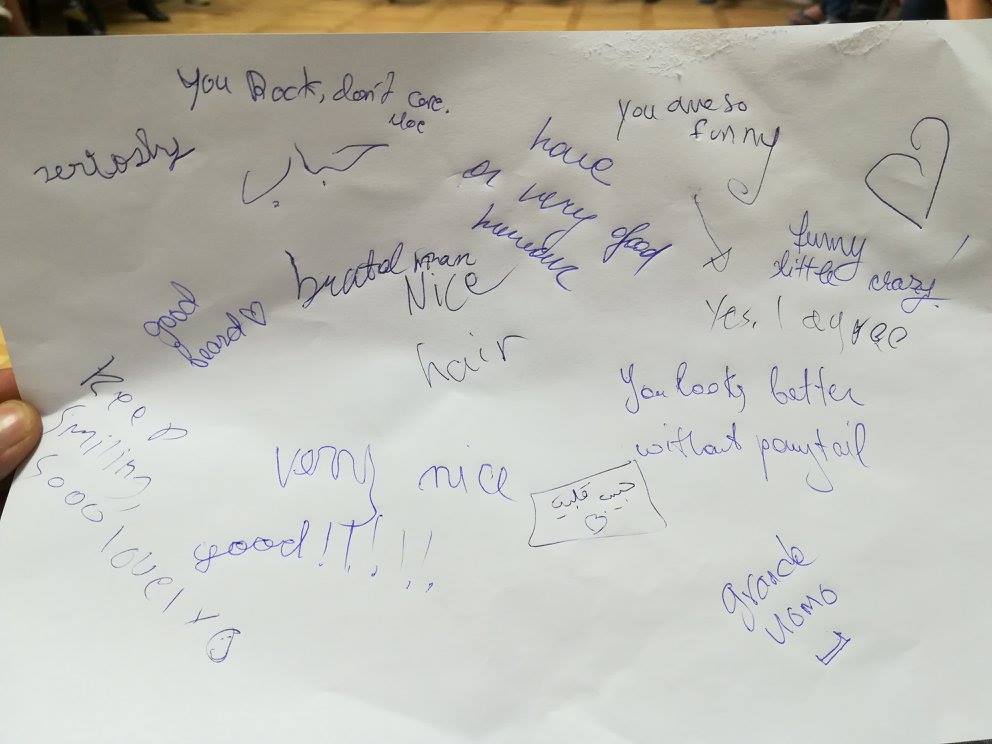 You Rock, don't care.
Moe
seriosly
حباب
You are so
funny
have
a very good
humour
funny
little crazy!
Yes. I agree
brutal man
Nice
hair
good
beard♡
Keep
smiling,
sooo lovely☺
You looks better
without ponytail
very nice
good!!!!!
حبيب قلبي
♡
grande
uomo